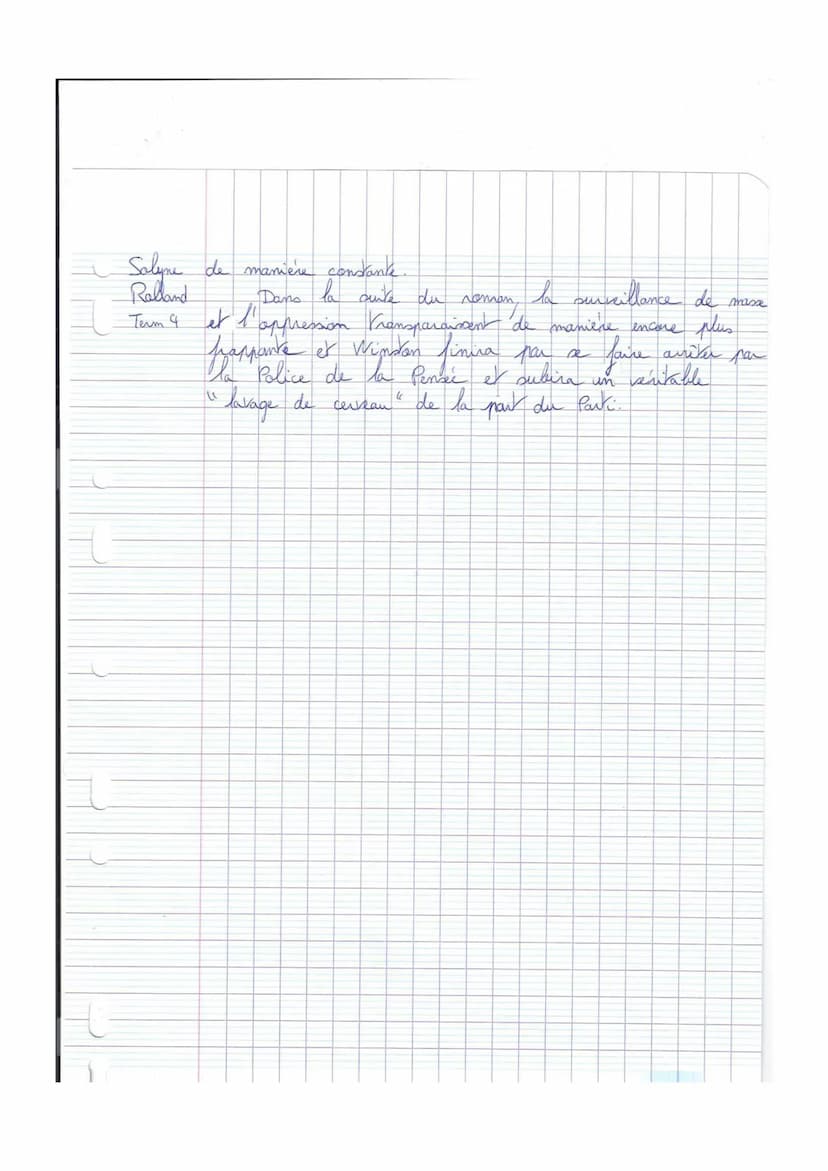 Solyne de manière constante.
Rolland Dans la suite du roman, la surveillance de masse
Term 4 et l'oppression transparaissent de manière encore plus
frappante et Winston finira par se faire arrêter par
la Police de la Pensée et subira un véritable
"lavage de cerveau" de la part du Parti.